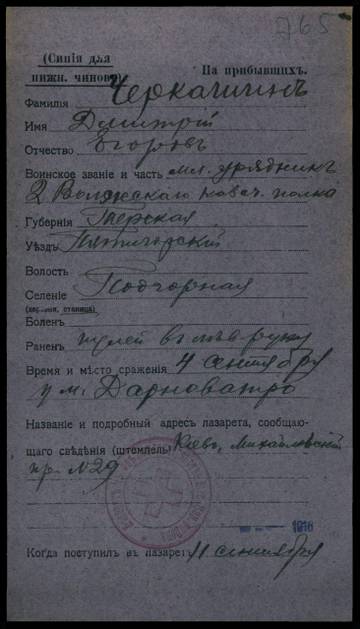 765
(Синія для
нижн. чиновъ)
На прибывшихъ.
Фамилія Черкашинъ
Имя Дмитрій
Отчество Егоровъ
Воинское званіе и часть мл. урядникъ
2 Волжскаго казач. полка
Губернія Терская
Уѣздъ Пятигорскій
Волость
Селеніе Подгорная
(дер. или станица)
Боленъ
Раненъ пулей въ лѣв. руку
Время и мѣсто сраженія 4 сентября
у м.
Названіе и подробный адресъ лазарета, сообщаю-
щаго свѣдѣнія (штемпель) Кіевъ, Михайловскій
пр. № 29
1916
Когда поступилъ въ лазаретъ 11 сентября